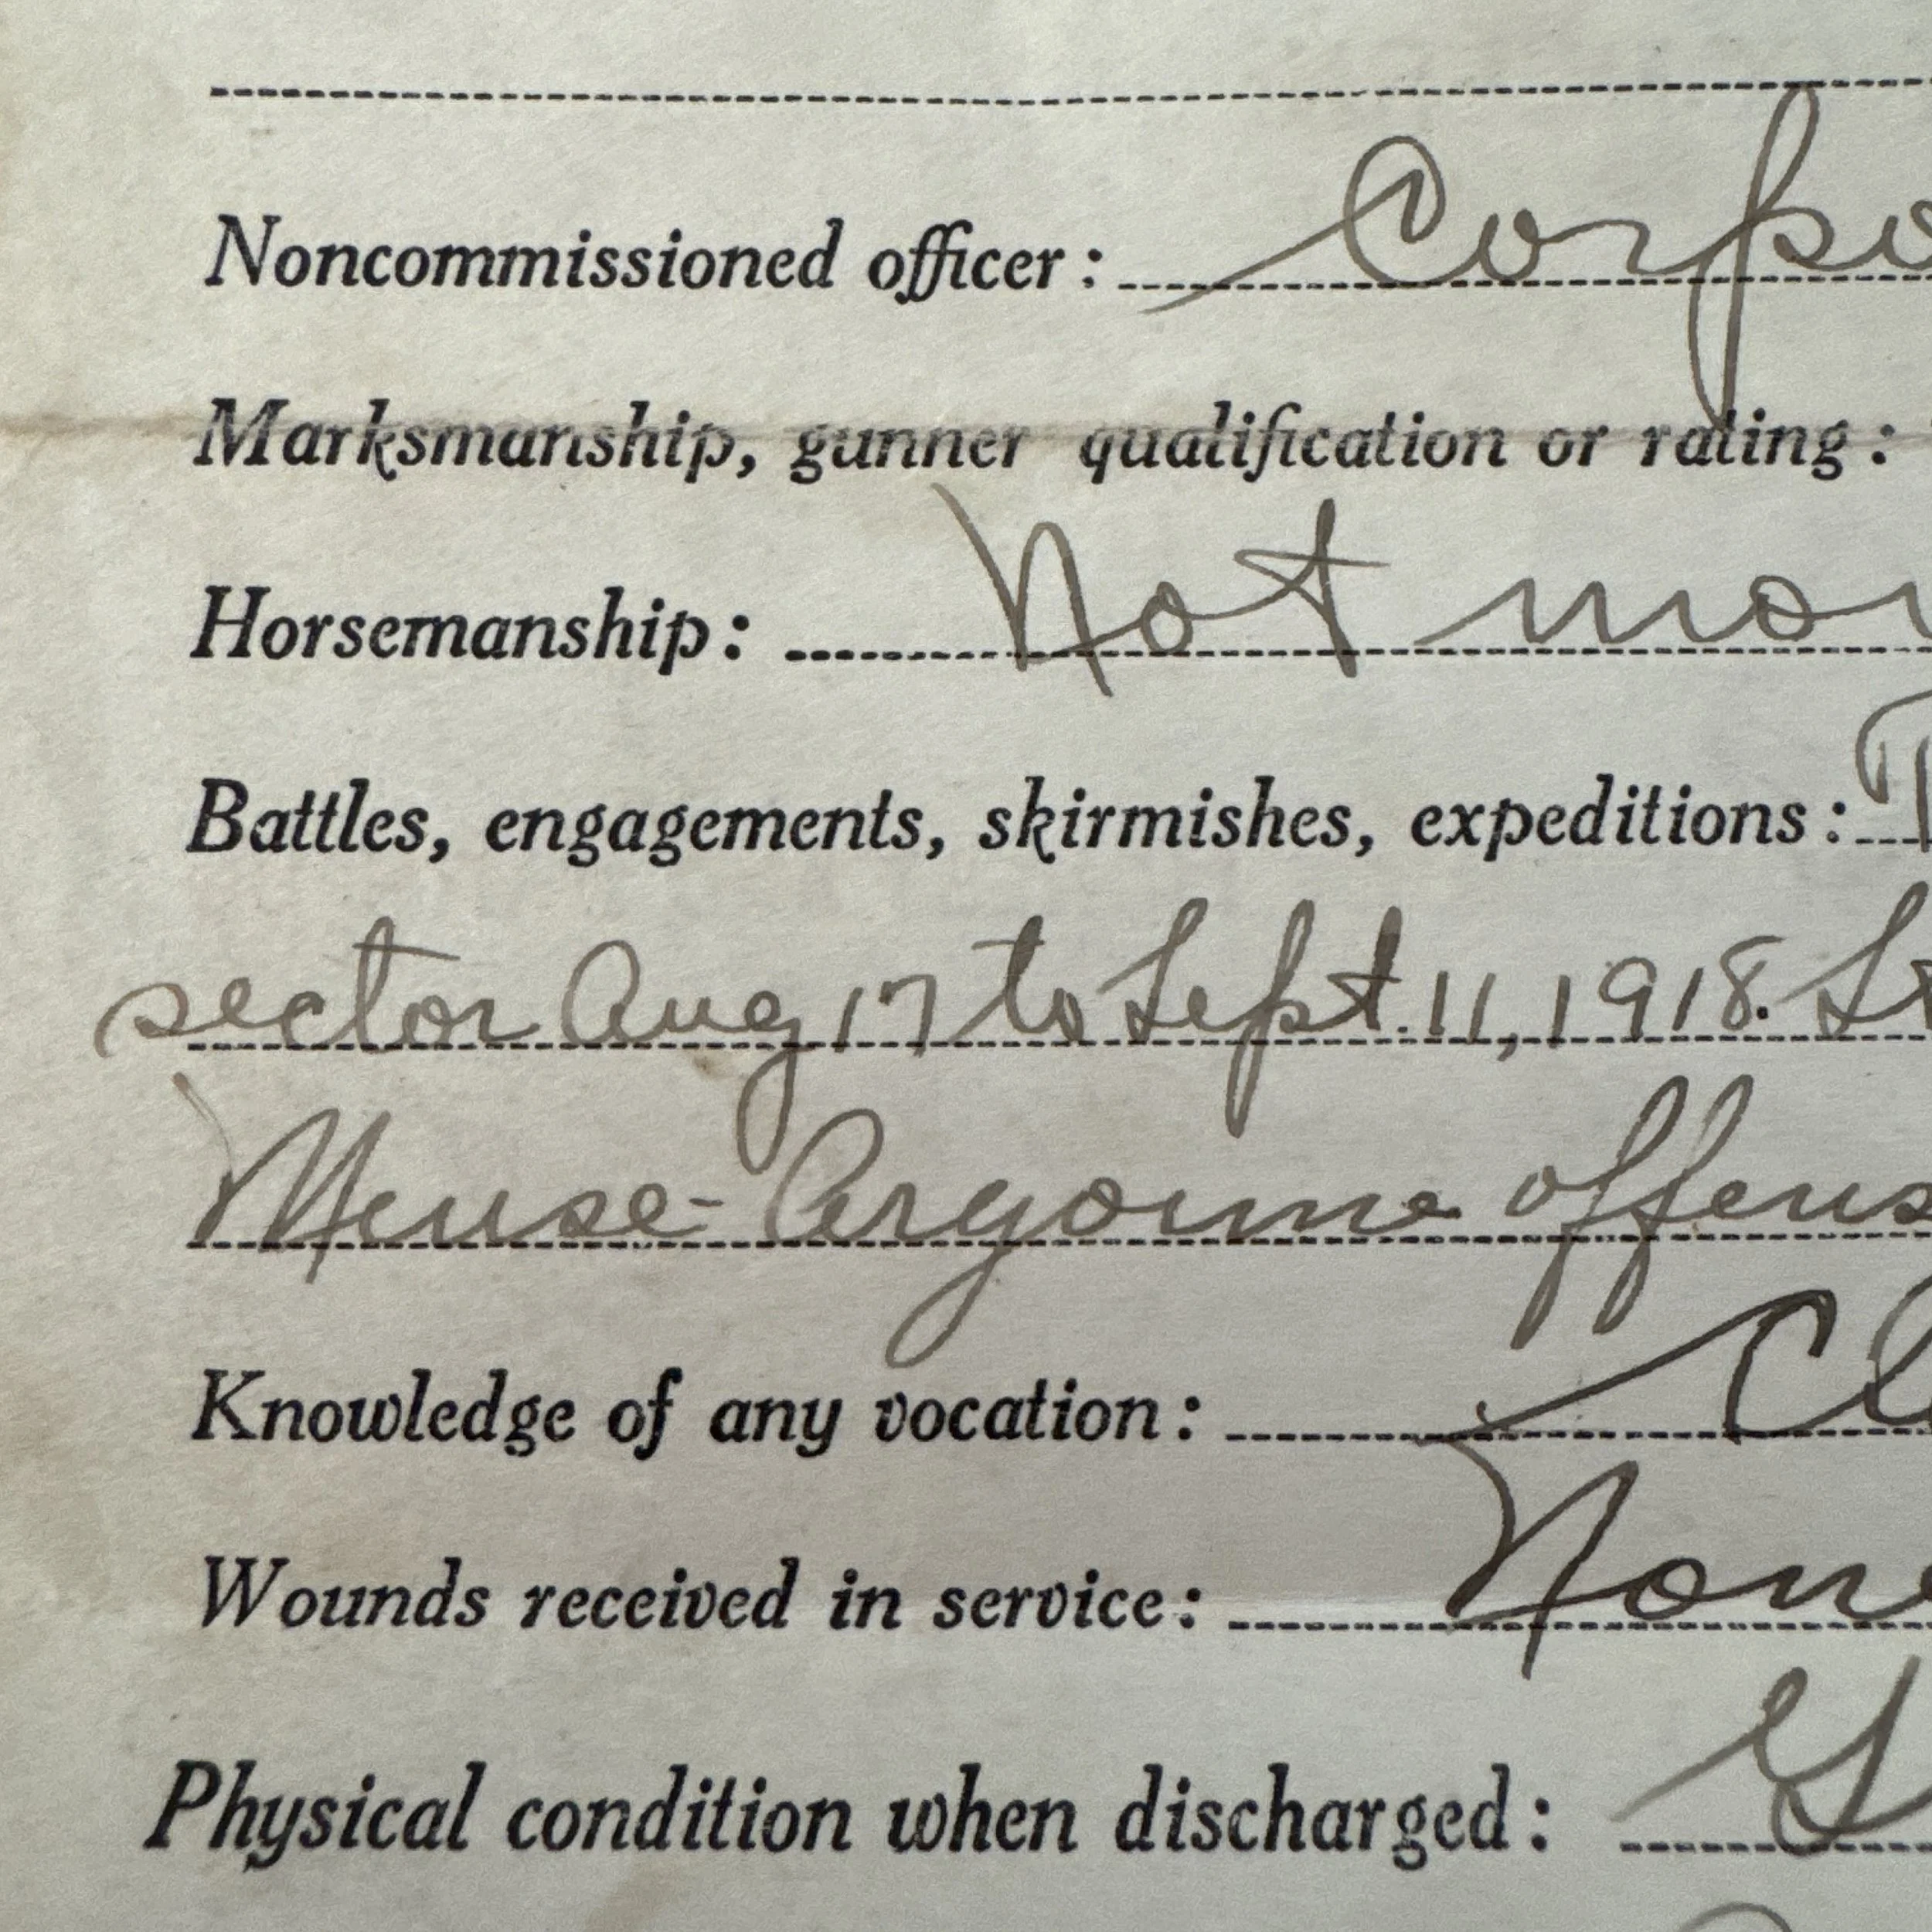 Noncommissioned officer: Corpo
Marksmanship, gunner qualification or rating:
Horsemanship: Not mou
Battles, engagements, skirmishes, expeditions: T
sector Aug 17 to Sept. 11, 1918. St
Meuse-Argonne offens
Knowledge of any vocation: Cl
Wounds received in service: None
Physical condition when discharged: G